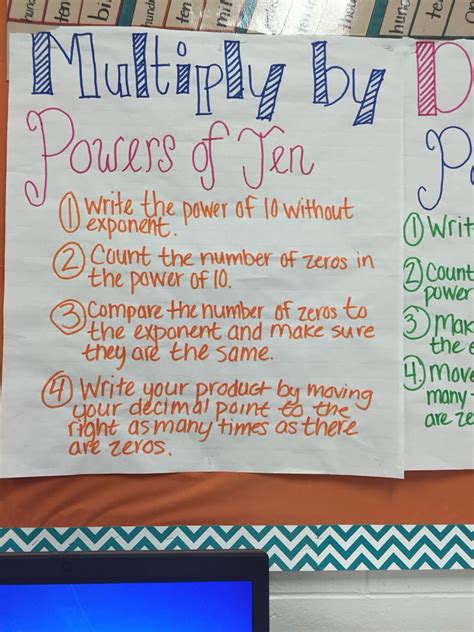 hund
ten
hun
ten
Multiply by
Powers of Ten
① Write the power of 10 without
exponent.
② Count the number of zeros in
the power of 10.
③ Compare the number of zeros to
the exponent and make sure
they are the same.
④ Write your product by moving
your decimal point to the
right as many times as there
are zeros.
D
P
① Writ
② Count
power
③ Mak
the e
④ Move
many t
are ze